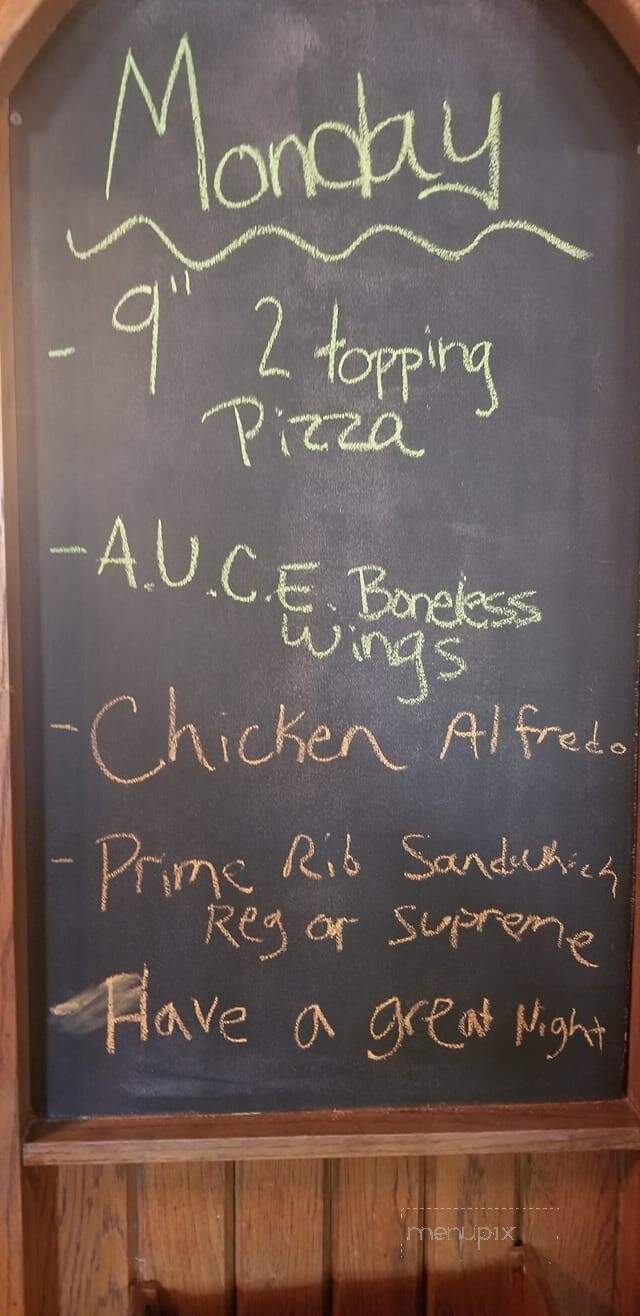 Monday
- 9" 2 topping
Pizza
- A.U.C.E. Boneless
Wings
- Chicken Alfredo
- Prime Rib Sandwhich
Reg or Supreme
- Have a great Night
menupix